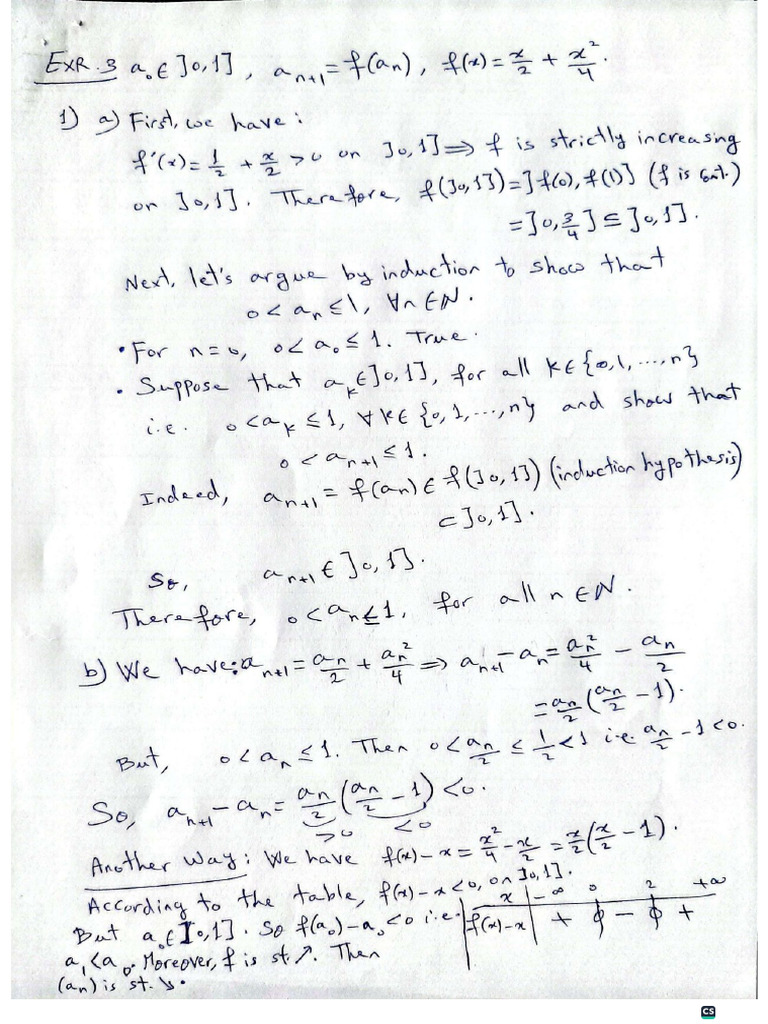 EXR. 3 a₀ ∈ ]0,1], aₙ₊₁ = f(aₙ), f(x) = x/2 + x²/4.
1) a) First, we have:
f'(x) = 1/2 + x/2 > 0 on ]0,1] ⟹ f is strictly increasing
on ]0,1]. Therefore, f(]0,1]) = ]f(0), f(1)] (f is cont.)
= ]0, 3/4] ⊆ ]0,1].
Next, let's argue by induction to show that
0 < aₙ ≤ 1, ∀n ∈ ℕ.
• For n=0, 0 < a₀ ≤ 1. True.
• Suppose that aₖ ∈ ]0,1], for all k ∈ {0,1,...,n}
i.e. 0 < aₖ ≤ 1, ∀k ∈ {0,1,...,n} and show that
0 < aₙ₊₁ ≤ 1.
Indeed, aₙ₊₁ = f(aₙ) ∈ f(]0,1]) (induction hypothesis)
⊂ ]0,1].
So, aₙ₊₁ ∈ ]0,1].
Therefore, 0 < aₙ ≤ 1, for all n ∈ ℕ.
b) We have: aₙ₊₁ = aₙ/2 + aₙ²/4 ⟹ aₙ₊₁ - aₙ = aₙ²/4 - aₙ/2
= aₙ/2 (aₙ/2 - 1).
But, 0 < aₙ ≤ 1. Then 0 < aₙ/2 ≤ 1/2 < 1 i.e. aₙ/2 - 1 < 0.
So, aₙ₊₁ - aₙ = aₙ/2 (aₙ/2 - 1) < 0.
>0 <0
Another Way: We have f(x) - x = x²/4 - x/2 = x/2 (x/2 - 1).
According to the table, f(x) - x < 0, on ]0,1].
x | -∞ 0 2 +∞
But a₀ ∈ ]0,1]. So f(a₀) - a₀ < 0 i.e.
f(x)-x | + 0 - 0 +
a₁ < a₀. Moreover, f is st. ↗. Then
(aₙ) is st. ↘.
CS